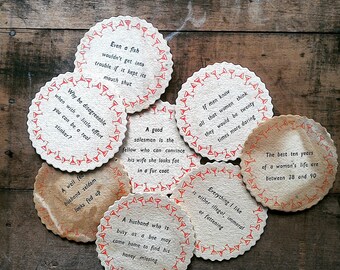 Even a fish
wouldn't get into
trouble if it kept its
mouth shut
Why be disagreeable,
when with a little effort
you can be a real
stinker?
If men knew
all that women think
they would be twenty
times more daring
A good
salesman is the
fellow who can convince
his wife she looks fat
in a fur coat
The best ten years
of a woman's life are
between 28 and
A well
husband seldom
looks fed up
Everything I like
is either illegal immoral
or fattening
A husband who is
busy as a bee may
come home to find his
honey missing